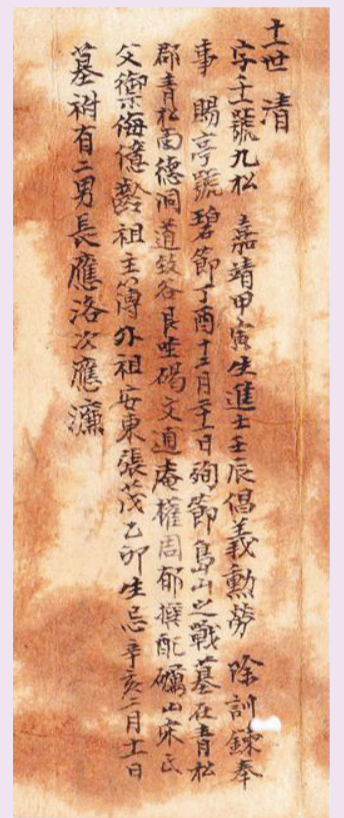 十一世 清
字士號九松 嘉靖甲寅生進士壬辰倡義勳勞 除訓鍊奉
事 賜亭號碧節丁酉十二月二十日殉節島山之戰墓在青松
郡青松面德洞道致谷艮坐碣文逋庵權周郁撰配礪山宋氏
父禦侮億齡祖主簿外祖安東張茂乙卯生忌辛亥二月十一日
墓祔有二男長應洛次應濂